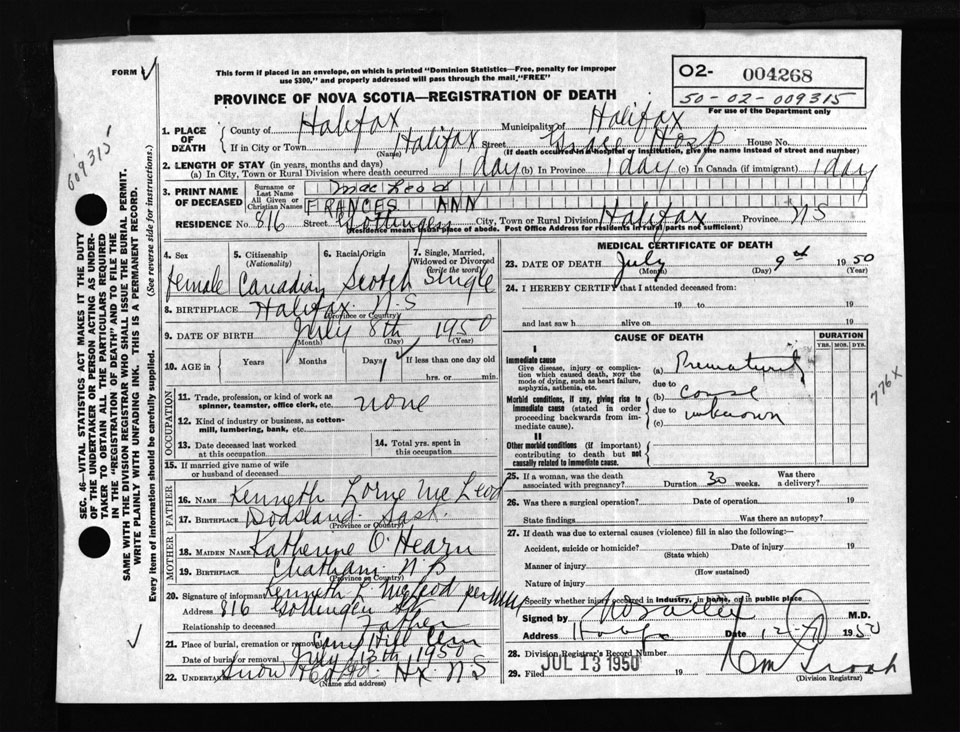 FORM V
This form if placed in an envelope, on which is printed "Dominion Statistics—Free, penalty for improper
use $300," and properly addressed will pass through the mail, "FREE"
O2- 004268
50-02-009315
For use of the Department only
PROVINCE OF NOVA SCOTIA—REGISTRATION OF DEATH
009315
SEC. 46—VITAL STATISTICS ACT MAKES IT THE DUTY
OF THE UNDERTAKER OR PERSON ACTING AS UNDER-
TAKER TO OBTAIN ALL THE PARTICULARS REQUIRED
IN THE "REGISTRATION OF DEATH" AND TO FILE THE
SAME WITH THE DIVISION REGISTRAR WHO SHALL ISSUE THE BURIAL PERMIT.
WRITE PLAINLY WITH UNFADING INK. THIS IS A PERMANENT RECORD.
Every item of information should be carefully supplied. (See reverse side for instructions.)
1. PLACE OF DEATH County of Halifax Municipality of Halifax
If in City or Town Halifax Street Grace Hosp House No.
(Name) (If death occurred in a hospital or institution, give the name instead of street and number)
2. LENGTH OF STAY (in years, months and days)
(a) In City, Town or Rural Division where death occurred 1 day (b) In Province 1 day (c) In Canada (if immigrant) 1 day
3. PRINT NAME OF DECEASED Surname or Last Name Mac Leod
All Given or Christian Names FRANCES ANN
RESIDENCE No. 816 Street Gottingen City, Town or Rural Division Halifax Province NS
(Residence means usual place of abode. Post Office Address for residents in rural parts not sufficient)
4. Sex 5. Citizenship (Nationality) 6. Racial Origin 7. Single, Married, Widowed or Divorced (write the word)
female Canadian Scotch Single
8. BIRTHPLACE Halifax N.S
(Province or Country)
9. DATE OF BIRTH July 8th 1950
(Month) (Day) (Year)
10. AGE in Years Months Days If less than one day old
1 hrs. or min.
OCCUPATION
11. Trade, profession, or kind of work as
spinner, teamster, office clerk, etc. none
12. Kind of industry or business, as cotton-
mill, lumbering, bank, etc.
13. Date deceased last worked
at this occupation
14. Total yrs. spent in
this occupation
15. If married give name of wife
or husband of deceased
FATHER
16. NAME Kenneth Lorne Mc Leod
17. BIRTHPLACE Dodsland Sask.
(Province or Country)
MOTHER
18. MAIDEN NAME Katherine O'Hearn
19. BIRTHPLACE Chatham N B
(Province or Country)
20. Signature of informant Kenneth L. McLeod per
Address 816 Gottingen St
Relationship to deceased Father
21. Place of burial, cremation or removal Camp Hill Cem
Date of burial or removal July 13th 1950
22. UNDERTAKER Snow & Co Hx. N S
(Name and address)
MEDICAL CERTIFICATE OF DEATH
23. DATE OF DEATH July 9th 1950
(Month) (Day) (Year)
24. I HEREBY CERTIFY that I attended deceased from:
19 to 19
and last saw h alive on 19
CAUSE OF DEATH DURATION
YRS. MOS. DYS.
I
Immediate cause
Give disease, injury or complica-
tion which caused death, NOT the
mode of dying, such as heart failure,
asphyxia, asthenia, etc.
(a) Prematurity
due to
Morbid conditions, if any, giving rise to
immediate cause (stated in order
proceeding backwards from im-
mediate cause).
(b) Cause
due to unknown
(c)
II
Other morbid conditions (if important)
contributing to death but not
causally related to immediate cause.
776 X
25. If a woman, was the death
associated with pregnancy? Duration 30 weeks. Was there
a delivery?
26. Was there a surgical operation? Date of operation 19
State findings Was there an autopsy?
27. If death was due to external causes (violence) fill in also the following:—
Accident, suicide or homicide? Date of injury 19
(State which)
Manner of injury
(How sustained)
Nature of injury
Specify whether injury occurred in industry, in home, or in public place
Signed by M.D.
Address Halifax Date 1950
28. Division Registrar's Record Number
29. Filed JUL 13 1950
(Division Registrar)